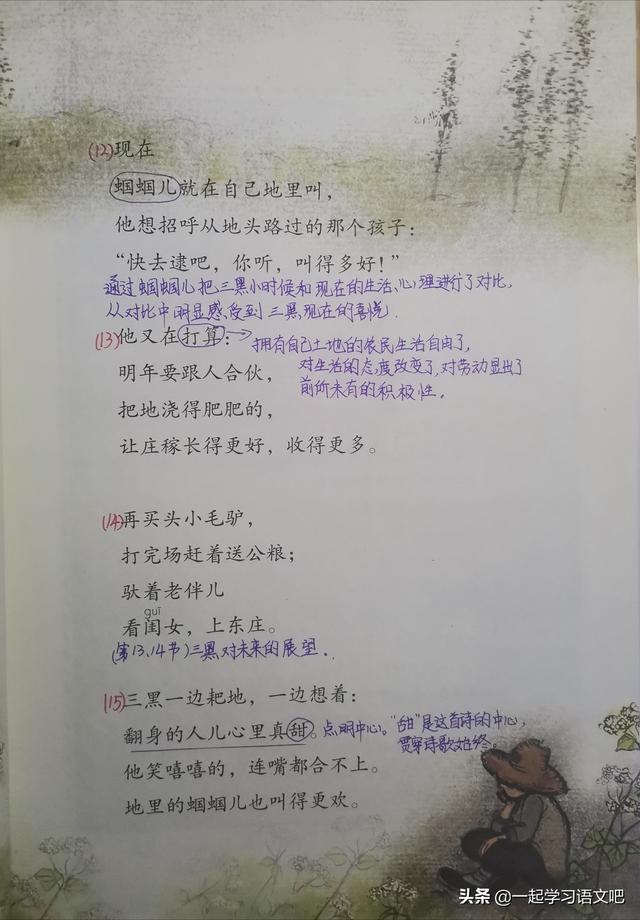 (12)现在
蝈蝈儿就在自己地里叫，
他想招呼从地头路过的那个孩子：
“快去逮吧，你听，叫得多好！”
通过蝈蝈儿把三黑小时候和现在的生活、心理进行了对比，
从对比中明显感受到三黑现在的喜悦.
(13)他又在打算：→拥有自己土地的农民生活自由了，
明年要跟人合伙，对生活的态度改变了，对劳动显出了
前所未有的积极性.
把地浇得肥肥的，
让庄稼长得更好，收得更多。
(14)再买头小毛驴，
打完场赶着送公粮；
驮着老伴儿
guī
看闺女，上东庄。
(第13、14节)三黑对未来的展望.
(15)三黑一边耙地，一边想着：
翻身的人儿心里真甜。点明中心。“甜”是这首诗的中心，
贯穿诗歌始终。
他笑嘻嘻的，连嘴都合不上。
地里的蝈蝈儿也叫得更欢。
头条 @一起学习语文吧